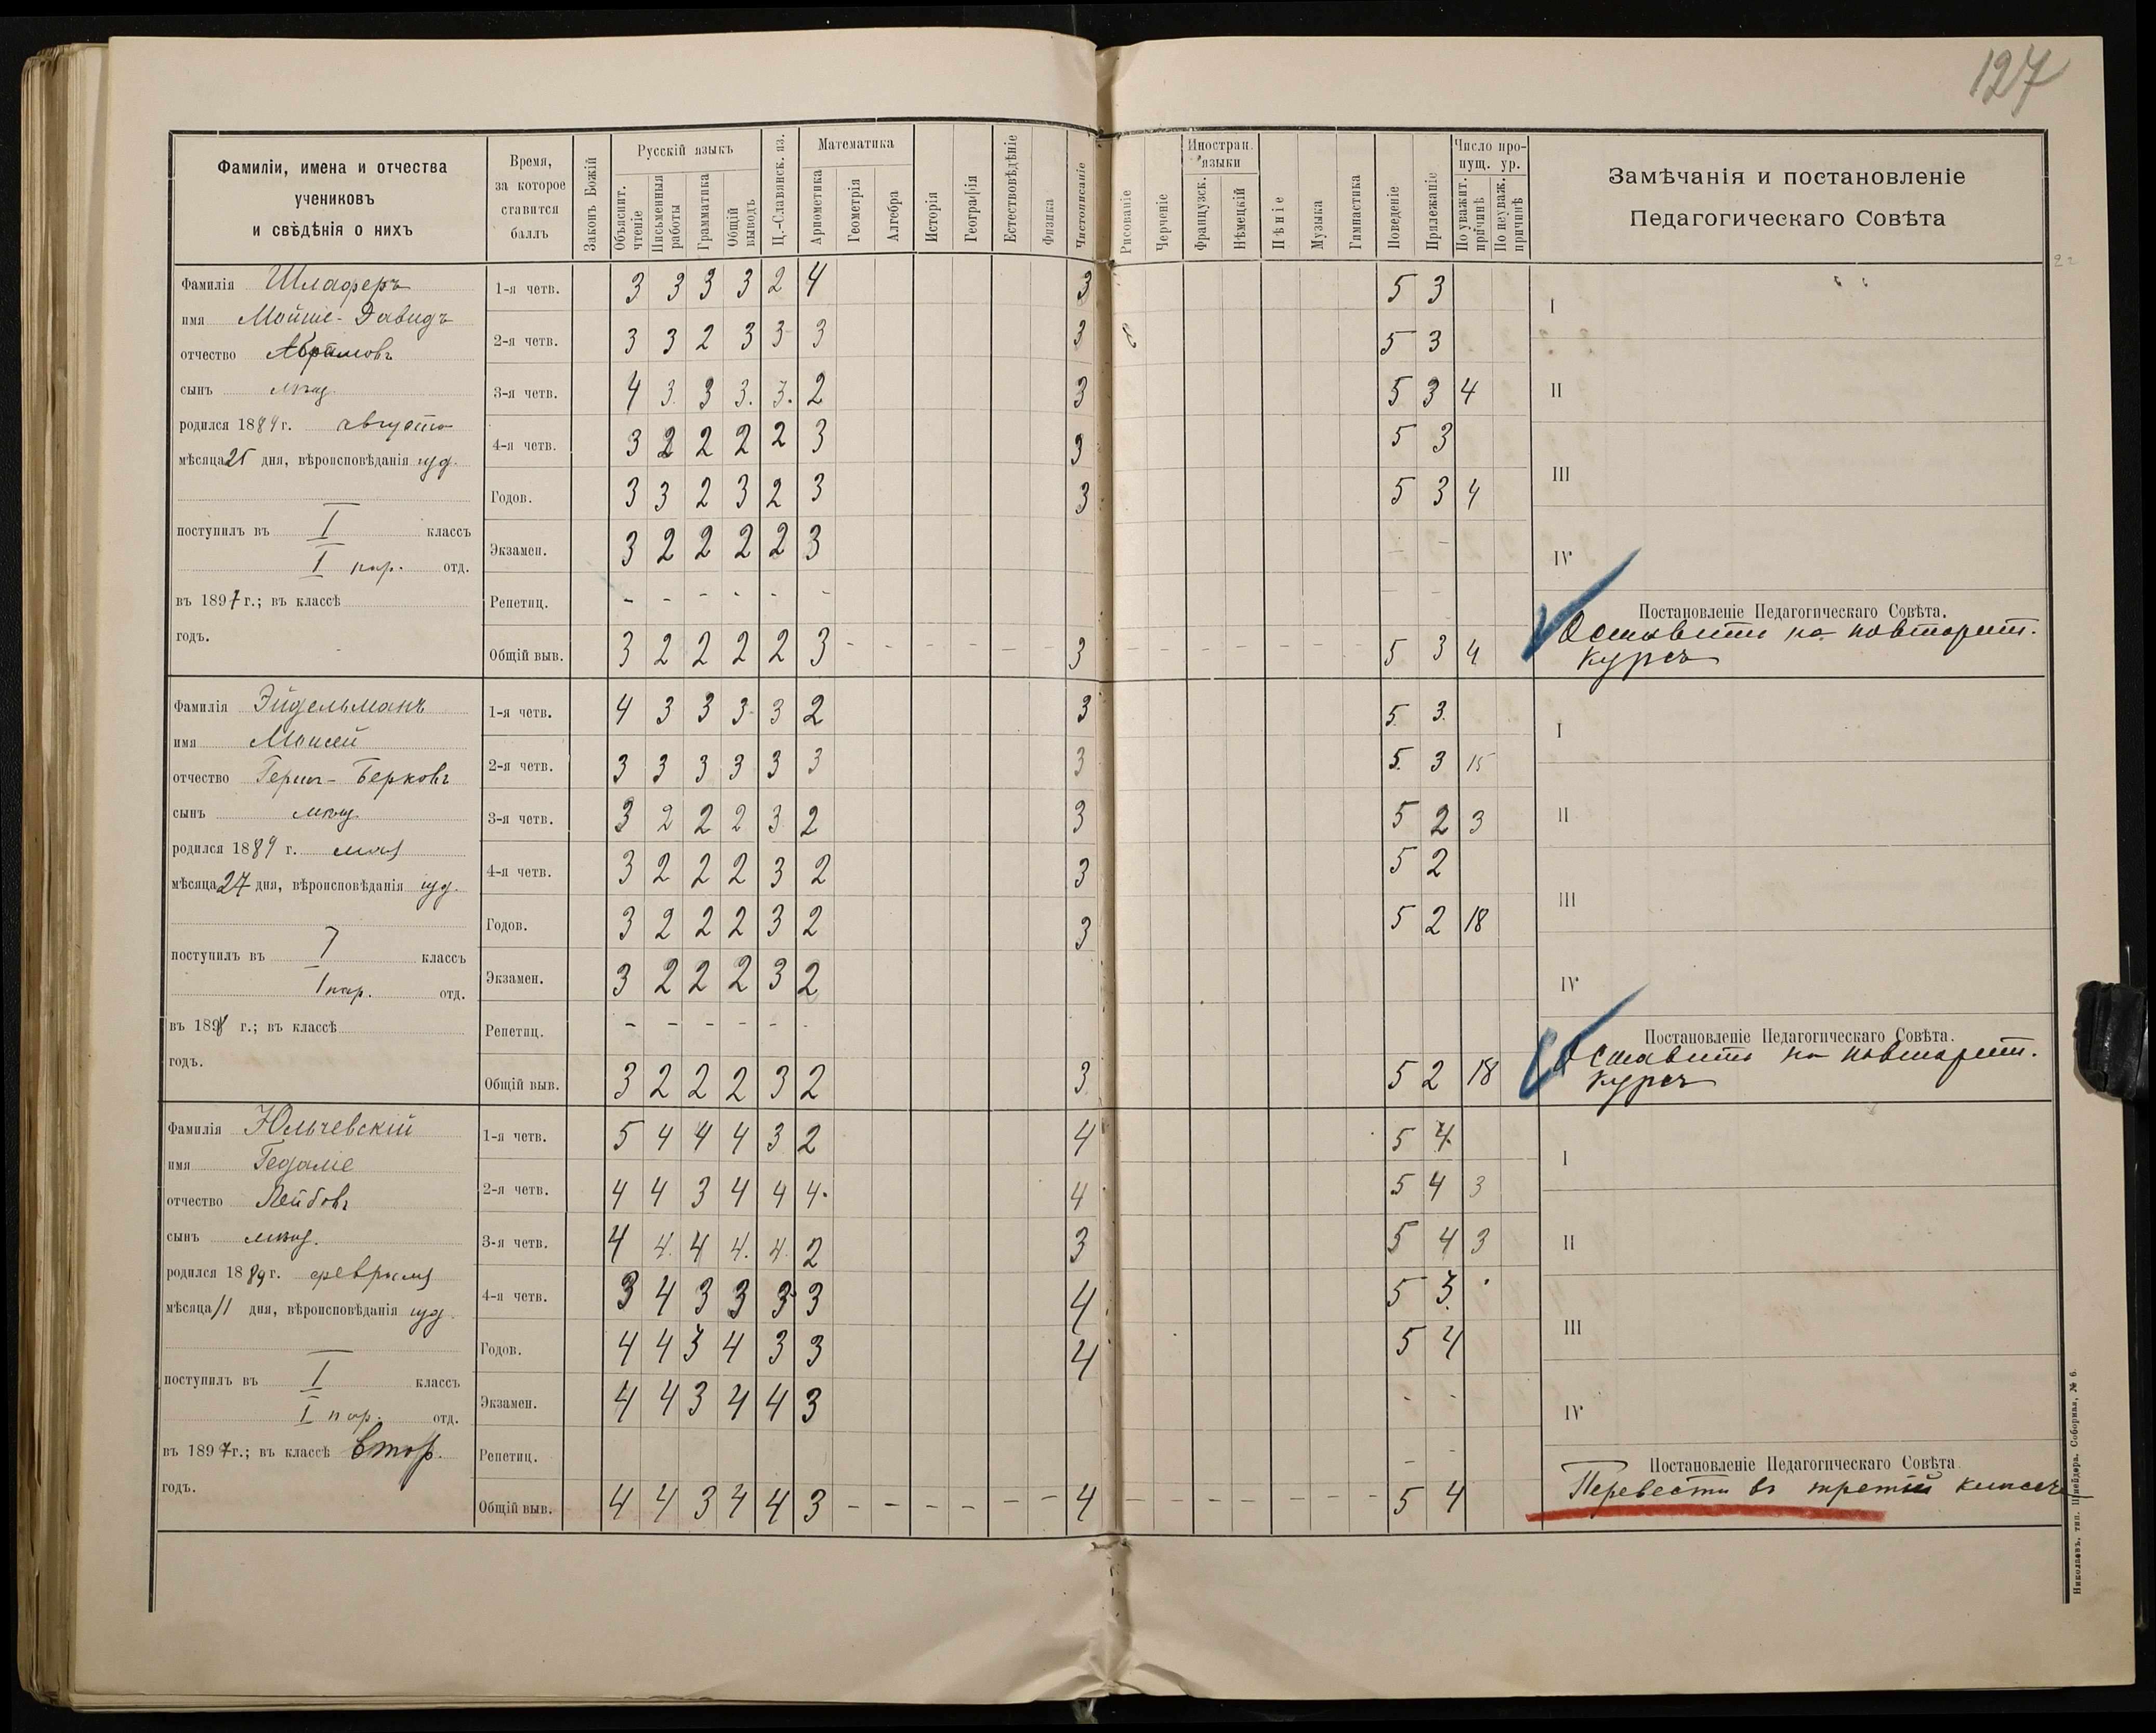 127
Фамиліи, имена и отчества
учениковъ
и свѣдѣнія о нихъ
Время,
за которое
ставится
баллъ
Законъ Божій
Русскій языкъ
Объяснит. чтеніе
Письменныя работы
Грамматика
Общій выводъ
Ц.-Славянск. яз.
Математика
Ариѳметика
Геометрія
Алгебра
Исторія
Географія
Естествовѣдѣніе
Физика
Чистописаніе
Рисованіе
Черченіе
Иностран. языки
Французск.
Нѣмецкій
Пѣніе
Музыка
Гимнастика
Поведеніе
Прилежаніе
Число пропущ. ур.
По уважит. причинѣ
По неуваж. причинѣ
Замѣчанія и постановленіе
Педагогическаго Совѣта
Фамилія Шлаферъ
имя Мойше-Давидъ
отчество Абрамовъ
сынъ мѣщ.
родился 1889 г. августа
мѣсяца 25 дня, вѣроисповѣданія іуд.
поступилъ въ I классъ
I пар. отд.
въ 1897 г.; въ классѣ
годъ.
1-я четв. 3 3 3 3 2 4 3 5 3
2-я четв. 3 3 2 3 3 3 3 5 3
3-я четв. 4 3. 3 3. 3. 2 3 5 3 4
4-я четв. 3 2 2 2 2 3 3 5 3
Годов. 3 3 2 3 2 3 3 5 3 4
Экзамен. 3 2 2 2 2 3 – –
Репетиц. – – – – – – – –
Общій выв. 3 2 2 2 2 3 – – – – – – 3 – – – – – – – 5 3 4
I
II
III
IV
Постановленіе Педагогическаго Совѣта.
Оставить на повторит.
курсъ
Фамилія Эйдельманъ
имя Моисей
отчество Герш-Берковъ
сынъ мѣщ.
родился 1889 г. мая
мѣсяца 27 дня, вѣроисповѣданія іуд.
поступилъ въ I классъ
I пар. отд.
въ 1898 г.; въ классѣ
годъ.
1-я четв. 4 3 3 3 3 2 3 5. 3.
2-я четв. 3 3 3 3 3 3 3 5. 3 15
3-я четв. 3 2 2 2 3 2 3 5 2 3
4-я четв. 3 2 2 2 3 2 3 5 2
Годов. 3 2 2 2 3 2 3 5 2 18
Экзамен. 3 2 2 2 3 2
Репетиц. – – – – – -
Общій выв. 3 2 2 2 3 2 3 5 2 18
I
II
III
IV
Постановленіе Педагогическаго Совѣта.
Оставить на повторит.
курсъ
Фамилія Юльчевскій
имя Гедаліе
отчество Лейбовъ
сынъ мѣщ.
родился 1889 г. февраля
мѣсяца 11 дня, вѣроисповѣданія іуд.
поступилъ въ I классъ
I пар. отд.
въ 1897 г.; въ классѣ втор.
годъ.
1-я четв. 5 4 4 4 3 2 4 5 4.
2-я четв. 4 4 3 4 4 4. 4 5 4 3
3-я четв. 4 4. 4 4. 4. 2 3 5 4 3
4-я четв. 3 4 3 3 3 3 4 5 3.
Годов. 4 4 3 4 3 3 4 5 4
Экзамен. 4 4 3 4 4 3 - -
Репетиц. – -
Общій выв. 4 4 3 4 4 3 – – – – – – 4 – – – – – – – 5 4
I
II
III
IV
Постановленіе Педагогическаго Совѣта.
Перевести въ третій классъ
Николаевъ, тип. Шнейдера. Соборная, № 6.